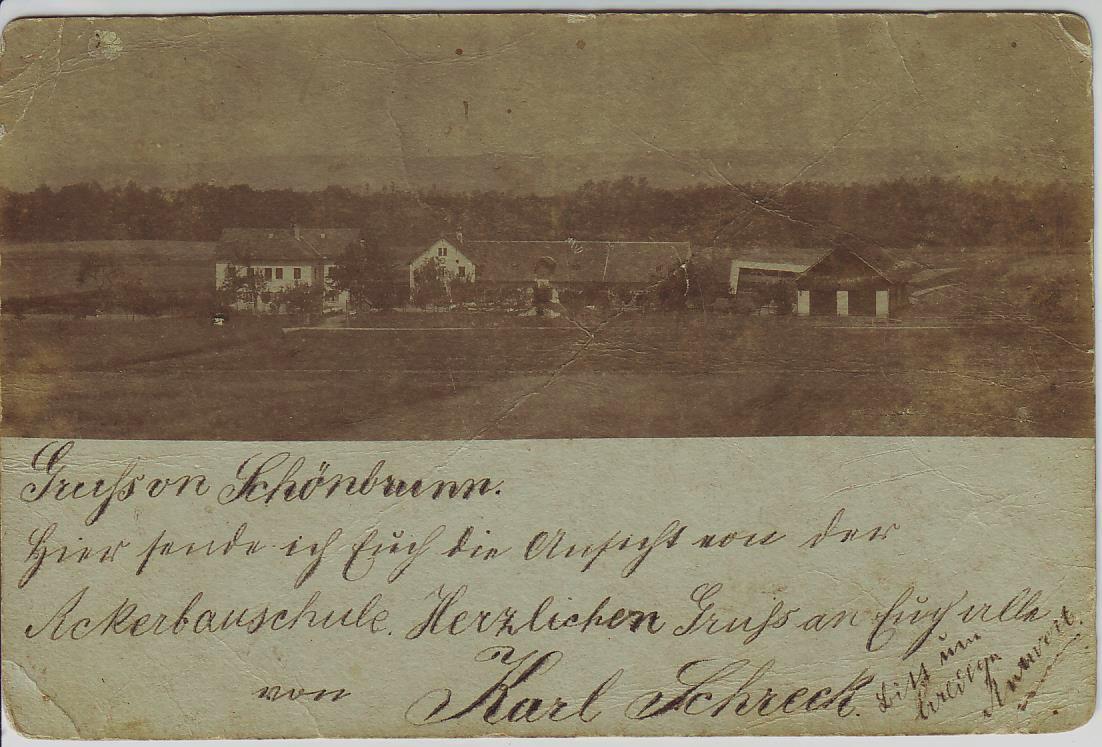 Gruss von Schönbrunn.
Hier sende ich Euch die Ansicht von der
Ackerbauschule. Herzlichen Gruss an Euch alle
von Karl Schreck.
Bitt um
baldige
Antwort.